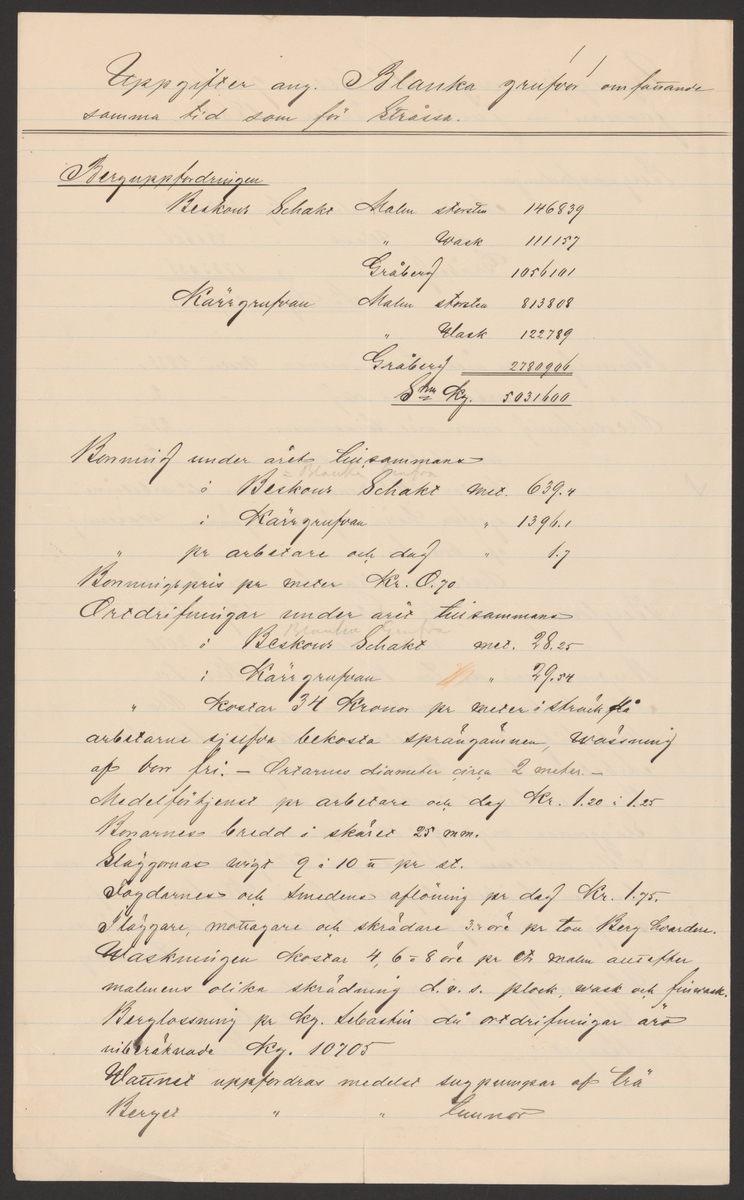 Uppgifter ang. Blanka grufvor omfattande
samma tid som för Stråssa.
Berguppfordringen
Beskows Schakt Malm storsten 146839
" Wask 111157
Gråberg 1056101
Kärrgrufvan Malm storsten 813808
" Wask 122789
Gråberg 2780906
S:ma Kg. 5031600
Borrning under året tillsammans
= Blanka Grufva
i Beskows Schakt met. 639.4
i Kärrgrufvan " 1396.1
" pr arbetare och dag " 1.7
Borrningspris pr meter Kr. 0.70
Ortdrifningar under året tillsammans
Blanka Grufva
i Beskows Schakt met. 28.25
i Kärrgrufvan " 29.54
" Kostar 34 Kronor pr meter i sträck få
arbetarne sjelfva bekosta sprängämnen, wässning
af borr fri. – Ortarnes diameter circa 2 meter. –
Medelförtjenst pr arbetare och dag Kr. 1.20 à 1.25
Borrarnes bredd i skäret 25 mm.
Släggornas wigt 9 à 10 pr st.
Fogdarnes och Smedens aflöning pr dag Kr. 1.75.
Iläggare, mottagare och skrädare öre pr ton Berg hvardera.
Waskningen Kostar 4, 6 à 8 öre pr ctr malm allt efter
malmens olika skrädning d.v.s. plock, wask och finwask.
Berglossning pr Kg. Sebastin då ortdrifningar äro
inberäknade Kg. 10705
Wattnet uppfordras medelst sugpumpar af trä
Berget " " tunnor